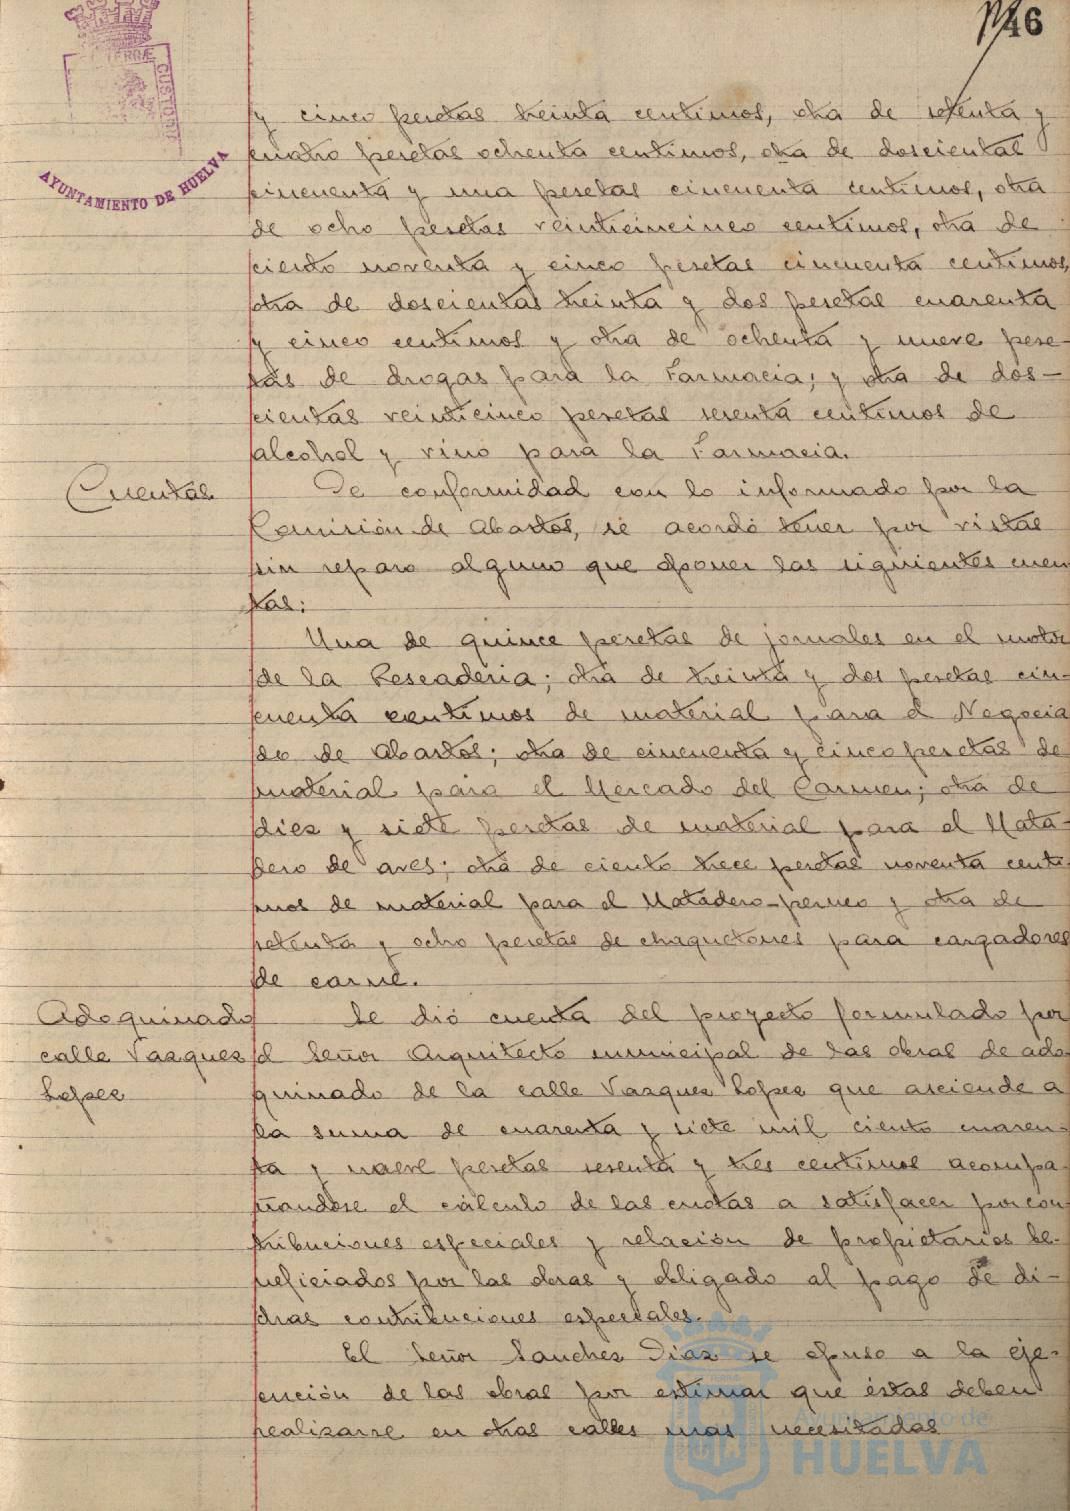 46
TERRAE CUSTODIA
AYUNTAMIENTO DE HUELVA
y cinco pesetas treinta centimos, otra de setenta y
cuatro pesetas ochenta centimos, otra de doscientas
cincuenta y una pesetas cincuenta centimos, otra
de ocho pesetas veinticincinco centimos, otra de
ciento noventa y cinco pesetas cincuenta centimos,
otra de doscientas treinta y dos pesetas cuarenta
y cinco centimos y otra de ochenta y nueve pese-
tas de drogas para la Farmacia; y otra de dos-
cientas veinticinco pesetas sesenta centimos de
alcohol y vino para la Farmacia.
Cuentas
De conformidad con lo informado por la
Comisión de Abastos, se acordó tener por vistas
sin reparo alguno que oponer las siguientes cuen
tas:
Una de quince pesetas de jornales en el motor
de la Pescaderia; otra de treinta y dos pesetas cin-
cuenta centimos de material para el Negocia
do de Abastos; otra de cincuenta y cinco pesetas de
material para el Mercado del Carmen; otra de
diez y siete pesetas de material para el Mata-
dero de aves; otra de ciento trece pesetas noventa centi
mos de material para el Matadero-perneo y otra de
setenta y ocho pesetas de chaquetones para cargadores
de carne.
Adoquinado
calle Vazquez
Lopez
Se dió cuenta del proyecto formulado por
el Señor Arquitecto municipal de las obras de ado
quinado de la calle Vazquez Lopez que asciende a
la suma de cuarenta y siete mil ciento cuaren-
ta y nueve pesetas sesenta y tres centimos acompa-
ñandose el cálculo de las cuotas a satisfacer por con
tribuciones especiales y relación de propietarios be-
neficiados por las obras y obligado al pago de di-
chas contribuciones especiales.
El Señor Sanchez Diaz se opuso a la eje-
cución de las obras por estimar que éstas deben
realizarse en otras calles mas necesitadas
Ayuntamiento de
HUELVA